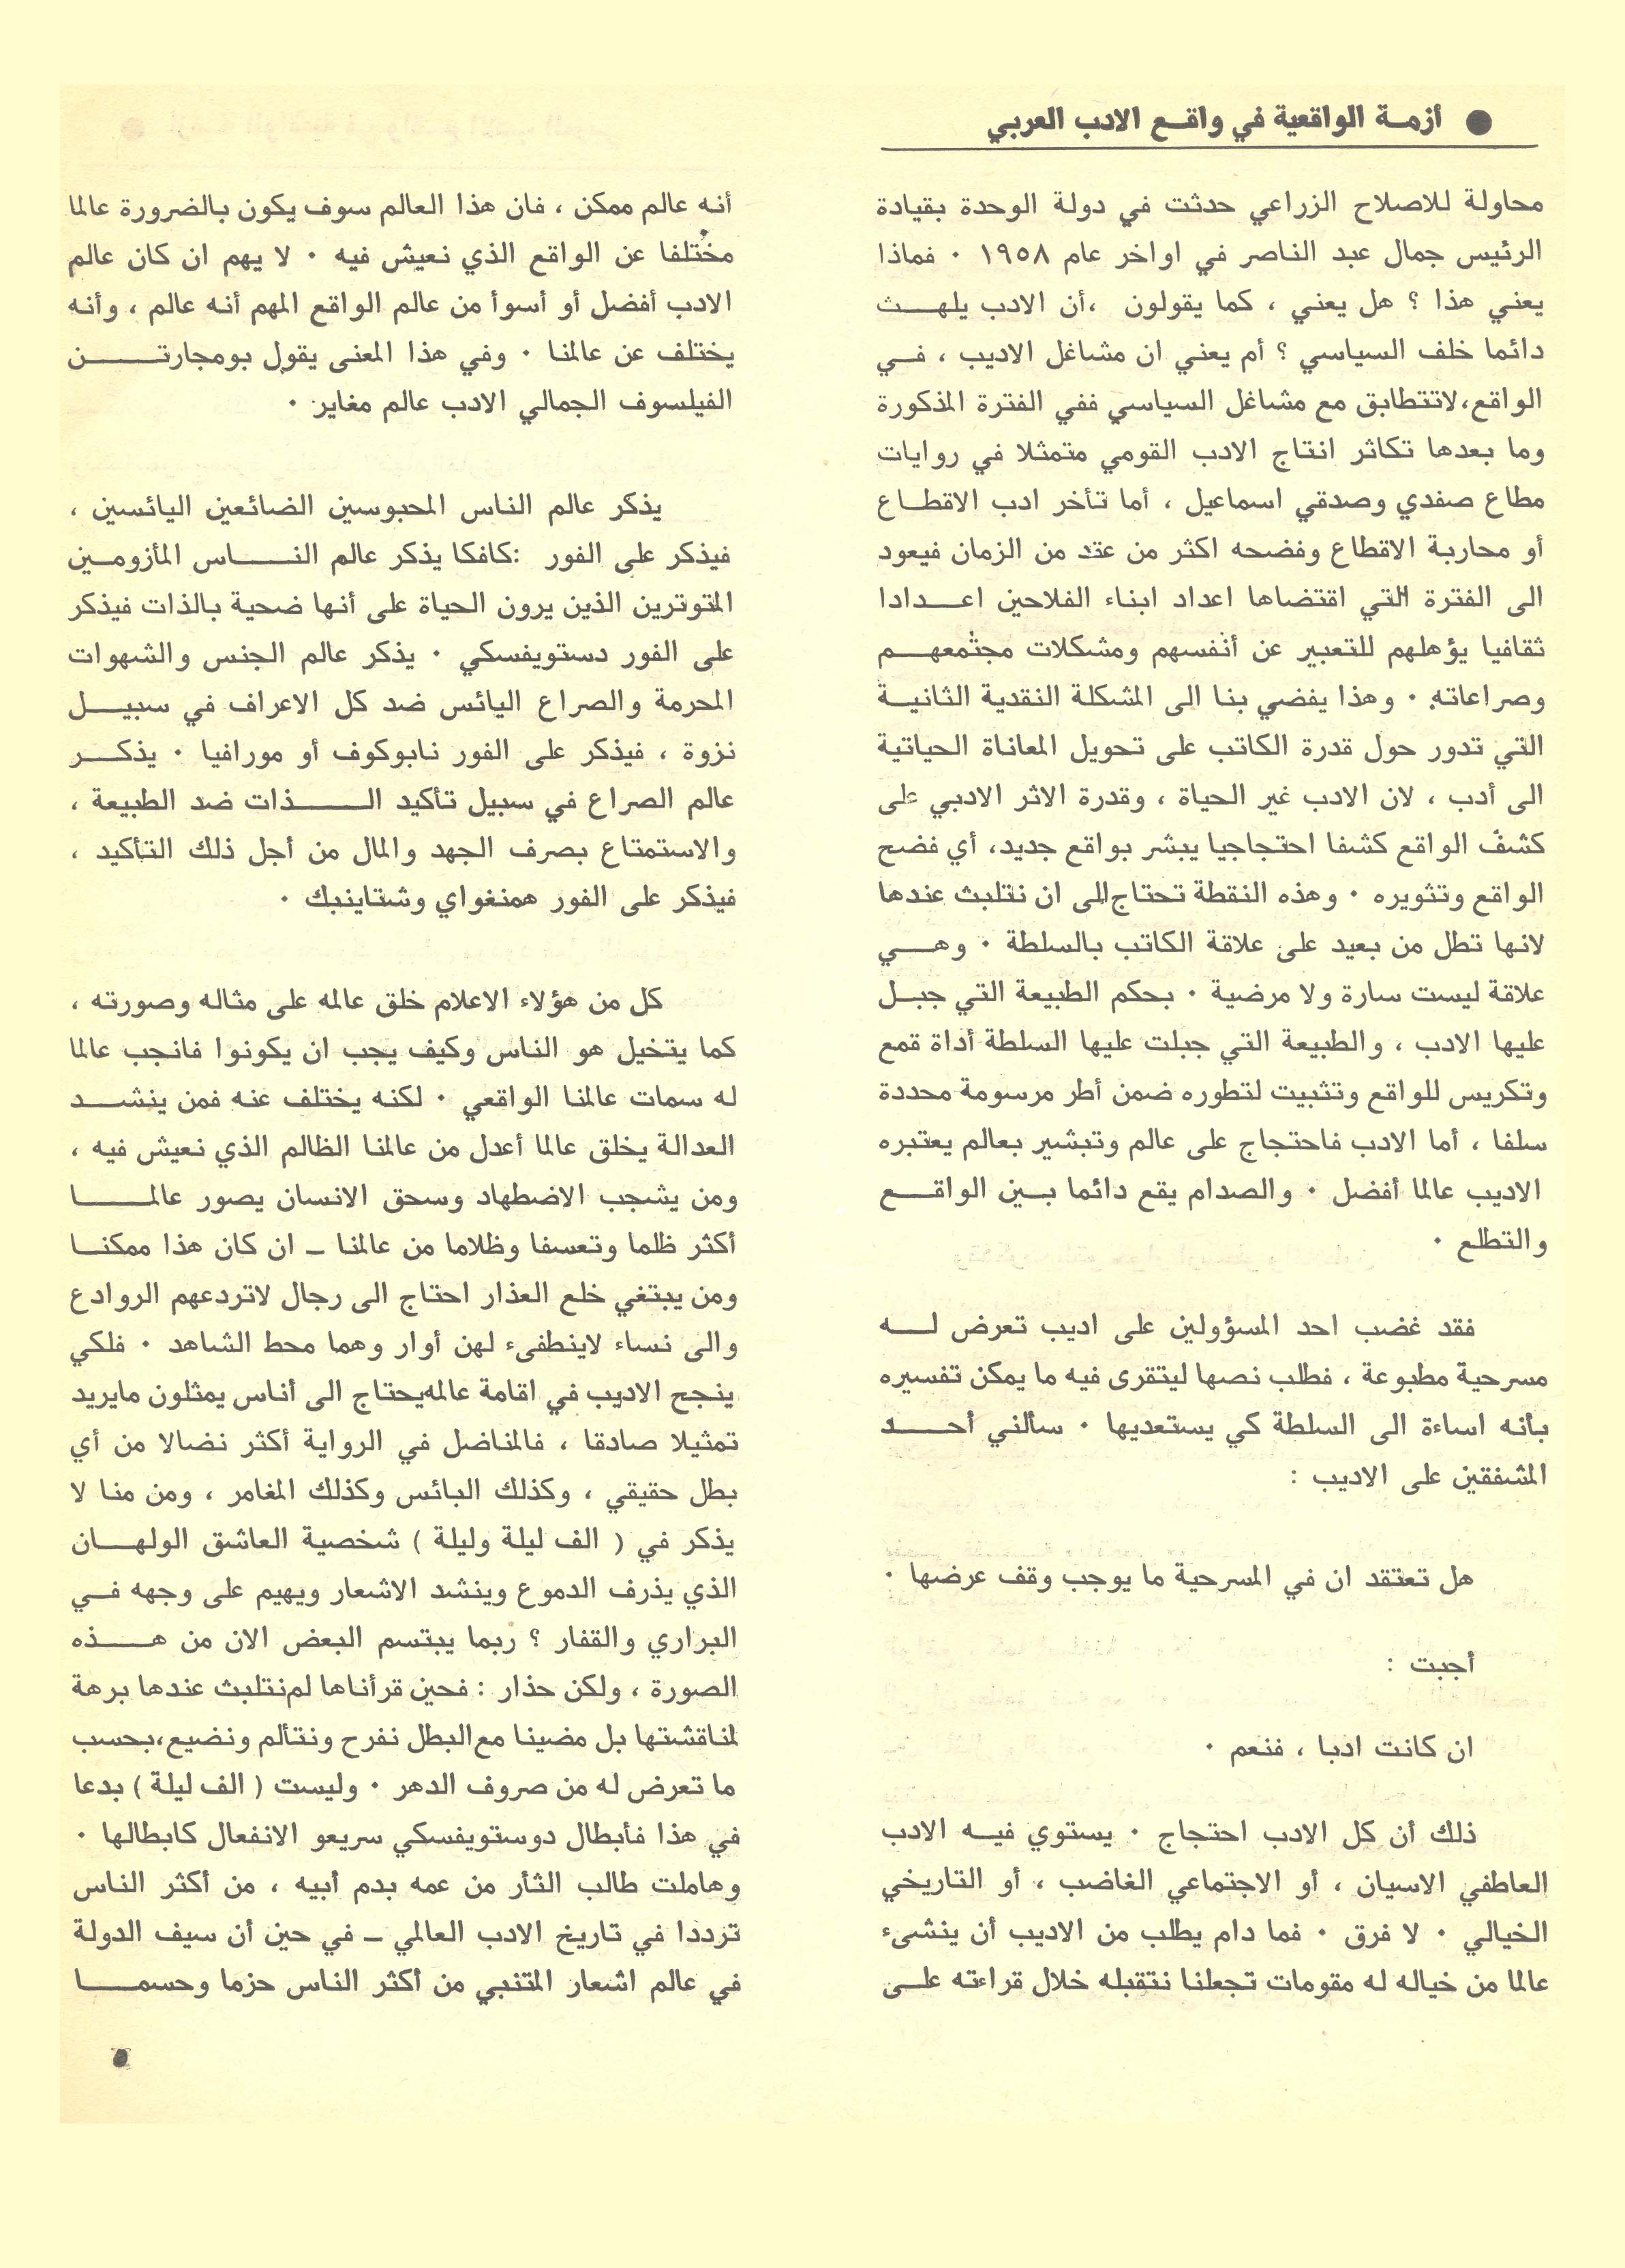 ● أزمة الواقعية في واقع الادب العربي
محاولة للاصلاح الزراعي حدثت في دولة الوحدة بقيادة
الرئيس جمال عبد الناصر في اواخر عام ١٩٥٨ ٠ فماذا
يعني هذا ؟ هل يعني ، كما يقولون ،أن الادب يلهث
دائما خلف السياسي ؟ أم يعني ان مشاغل الاديب ، في
الواقع،لاتتطابق مع مشاغل السياسي ففي الفترة المذكورة
وما بعدها تكاثر انتاج الادب القومي متمثلا في روايات
مطاع صفدي وصدقي اسماعيل ، أما تأخر ادب الاقطاع
أو محاربة الاقطاع وفضحه اكثر من عقد من الزمان فيعود
الى الفترة التي اقتضاها اعداد ابناء الفلاحين اعدادا
ثقافيا يؤهلهم للتعبير عن أنفسهم ومشكلات مجتمعهم
وصراعاته ٠ وهذا يفضي بنا الى المشكلة النقدية الثانية
التي تدور حول قدرة الكاتب على تحويل المعاناة الحياتية
الى أدب ، لان الادب غير الحياة ، وقدرة الاثر الادبي على
كشف الواقع كشفا احتجاجيا يبشر بواقع جديد، أي فضح
الواقع وتثويره ٠ وهذه النقطة تحتاج الى ان نتلبث عندها
لانها تطل من بعيد على علاقة الكاتب بالسلطة ٠ وهي
علاقة ليست سارة ولا مرضية ٠ بحكم الطبيعة التي جبل
عليها الادب ، والطبيعة التي جبلت عليها السلطة أداة قمع
وتكريس للواقع وتثبيت لتطوره ضمن أطر مرسومة محددة
سلفا ، أما الادب فاحتجاج على عالم وتبشير بعالم يعتبره
الاديب عالما أفضل ٠ والصدام يقع دائما بين الواقع
والتطلع ٠
فقد غضب احد المسؤولين على اديب تعرض له
مسرحية مطبوعة ، فطلب نصها ليتقرى فيه ما يمكن تفسيره
بأنه اساءة الى السلطة كي يستعديها ٠ سألني أحد
المشفقين على الاديب :
هل تعتقد ان في المسرحية ما يوجب وقف عرضها ٠
أجبت :
ان كانت ادبا ، فنعم ٠
ذلك أن كل الادب احتجاج ٠ يستوي فيه الادب
العاطفي الاسيان ، أو الاجتماعي الغاضب ، أو التاريخي
الخيالي ٠ لا فرق ٠ فما دام يطلب من الاديب أن ينشىء
عالما من خياله له مقومات تجعلنا نتقبله خلال قراءته على
أنه عالم ممكن ، فان هذا العالم سوف يكون بالضرورة عالما
مختلفا عن الواقع الذي نعيش فيه ٠ لا يهم ان كان عالم
الادب أفضل أو أسوأ من عالم الواقع المهم أنه عالم ، وأنه
يختلف عن عالمنا ٠ وفي هذا المعنى يقول بومجارتن
الفيلسوف الجمالي الادب عالم مغاير ٠
يذكر عالم الناس المحبوسين الضائعين اليائسين ،
فيذكر على الفور :كافكا يذكر عالم الناس المأزومين
المتوترين الذين يرون الحياة على أنها ضحية بالذات فيذكر
على الفور دستويفسكي ٠ يذكر عالم الجنس والشهوات
المحرمة والصراع اليائس ضد كل الاعراف في سبيل
نزوة ، فيذكر على الفور نابوكوف أو مورافيا ٠ يذكر
عالم الصراع في سبيل تأكيد الذات ضد الطبيعة ،
والاستمتاع بصرف الجهد والمال من أجل ذلك التأكيد ،
فيذكر على الفور همنغواي وشتاينبك ٠
كل من هؤلاء الاعلام خلق عالمه على مثاله وصورته ،
كما يتخيل هو الناس وكيف يجب ان يكونوا فانجب عالما
له سمات عالمنا الواقعي ٠ لكنه يختلف عنه فمن ينشد
العدالة يخلق عالما أعدل من عالمنا الظالم الذي نعيش فيه ،
ومن يشجب الاضطهاد وسحق الانسان يصور عالما
أكثر ظلما وتعسفا وظلاما من عالمنا ـ ان كان هذا ممكنا
ومن يبتغي خلع العذار احتاج الى رجال لاتردعهم الروادع
والى نساء لاينطفىء لهن أوار وهما محط الشاهد ٠ فلكي
ينجح الاديب في اقامة عالمه يحتاج الى أناس يمثلون مايريد
تمثيلا صادقا ، فالمناضل في الرواية أكثر نضالا من أي
بطل حقيقي ، وكذلك البائس وكذلك المغامر ، ومن منا لا
يذكر في ( الف ليلة وليلة ) شخصية العاشق الولهان
الذي يذرف الدموع وينشد الاشعار ويهيم على وجهه في
البراري والقفار ؟ ربما يبتسم البعض الان من هذه
الصورة ، ولكن حذار : فحين قرأناها لم نتلبث عندها برهة
لمناقشتها بل مضينا مع البطل نفرح ونتألم ونضيع،بحسب
ما تعرض له من صروف الدهر ٠ وليست ( الف ليلة ) بدعا
في هذا فأبطال دوستويفسكي سريعو الانفعال كابطالها ٠
وهاملت طالب الثأر من عمه بدم أبيه ، من أكثر الناس
ترددا في تاريخ الادب العالمي ـ في حين أن سيف الدولة
في عالم اشعار المتنبي من أكثر الناس حزما وحسما